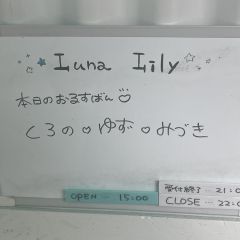 Luna Lily
本日のおるすばん
くろの♡ゆず♡みづき
OPEN … 15:00
受付終了 … 21:0
CLOSE … 22:0